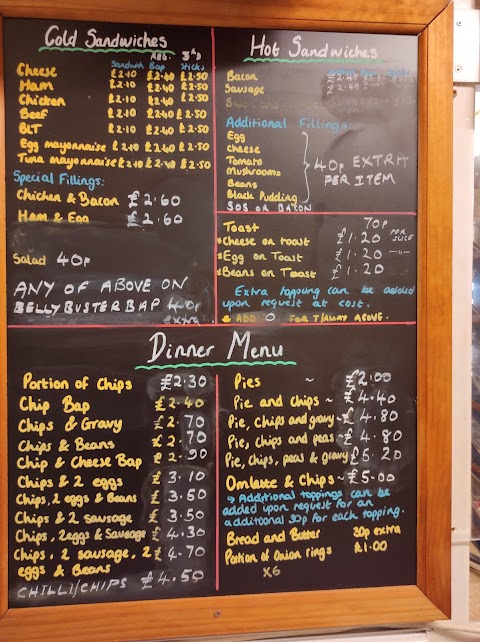 Cold Sandwiches
Sandwich Bap Sticks
Cheese £2.10 £2.40 £2.50
Ham £2.10 £2.40 £2.50
Chicken £2.10 £2.40 £2.50
Beef £2.10 £2.40 £2.50
BLT £2.10 £2.40 £2.50
Egg mayonnaise £2.10 £2.40 £2.50
Tuna mayonnaise £2.10 £2.40 £2.50
Special Fillings:
Chicken & Bacon £2.60
Ham & Egg £2.60
Salad 40p
ANY OF ABOVE ON
BELLYBUSTER BAP 40p
extra
Hot Sandwiches
Bacon £2.40
Sausage £2.40
Additional Fillings:
Egg
Cheese
Tomato
Mushrooms
Beans
Black Pudding
SOS OR BACON
40p EXTRA
PER ITEM
Toast 70p
*Cheese on toast £1.20 PER SLICE
*Egg on Toast £1.20 -"-
*Beans on Toast £1.20
Extra topping can be added
upon request at cost.
* ADD O FOR T/AWAY ABOVE.
Dinner Menu
Portion of Chips £2.30
Chip Bap £2.40
Chips & Gravy £2.70
Chips & Beans £2.70
Chip & Cheese Bap £2.90
Chips & 2 eggs £3.10
Chips, 2 eggs & Beans £3.50
Chips & 2 sausage £3.50
Chips, 2eggs & Sausage £4.30
Chips, 2 sausage, 2 £4.70
eggs & Beans
CHILLI/CHIPS £4.50
Pies ~ £2.00
Pie and chips ~ £4.40
Pie, chips and gravy ~ £4.80
Pie, chips and peas ~ £4.80
Pie, chips, peas & gravy £5.20
Omlette & Chips ~ £5.00
↳ Additional toppings can be
added upon request for an
additional 30p for each topping.
Bread and Butter 30p extra
Portion of Onion rings £1.00
X6